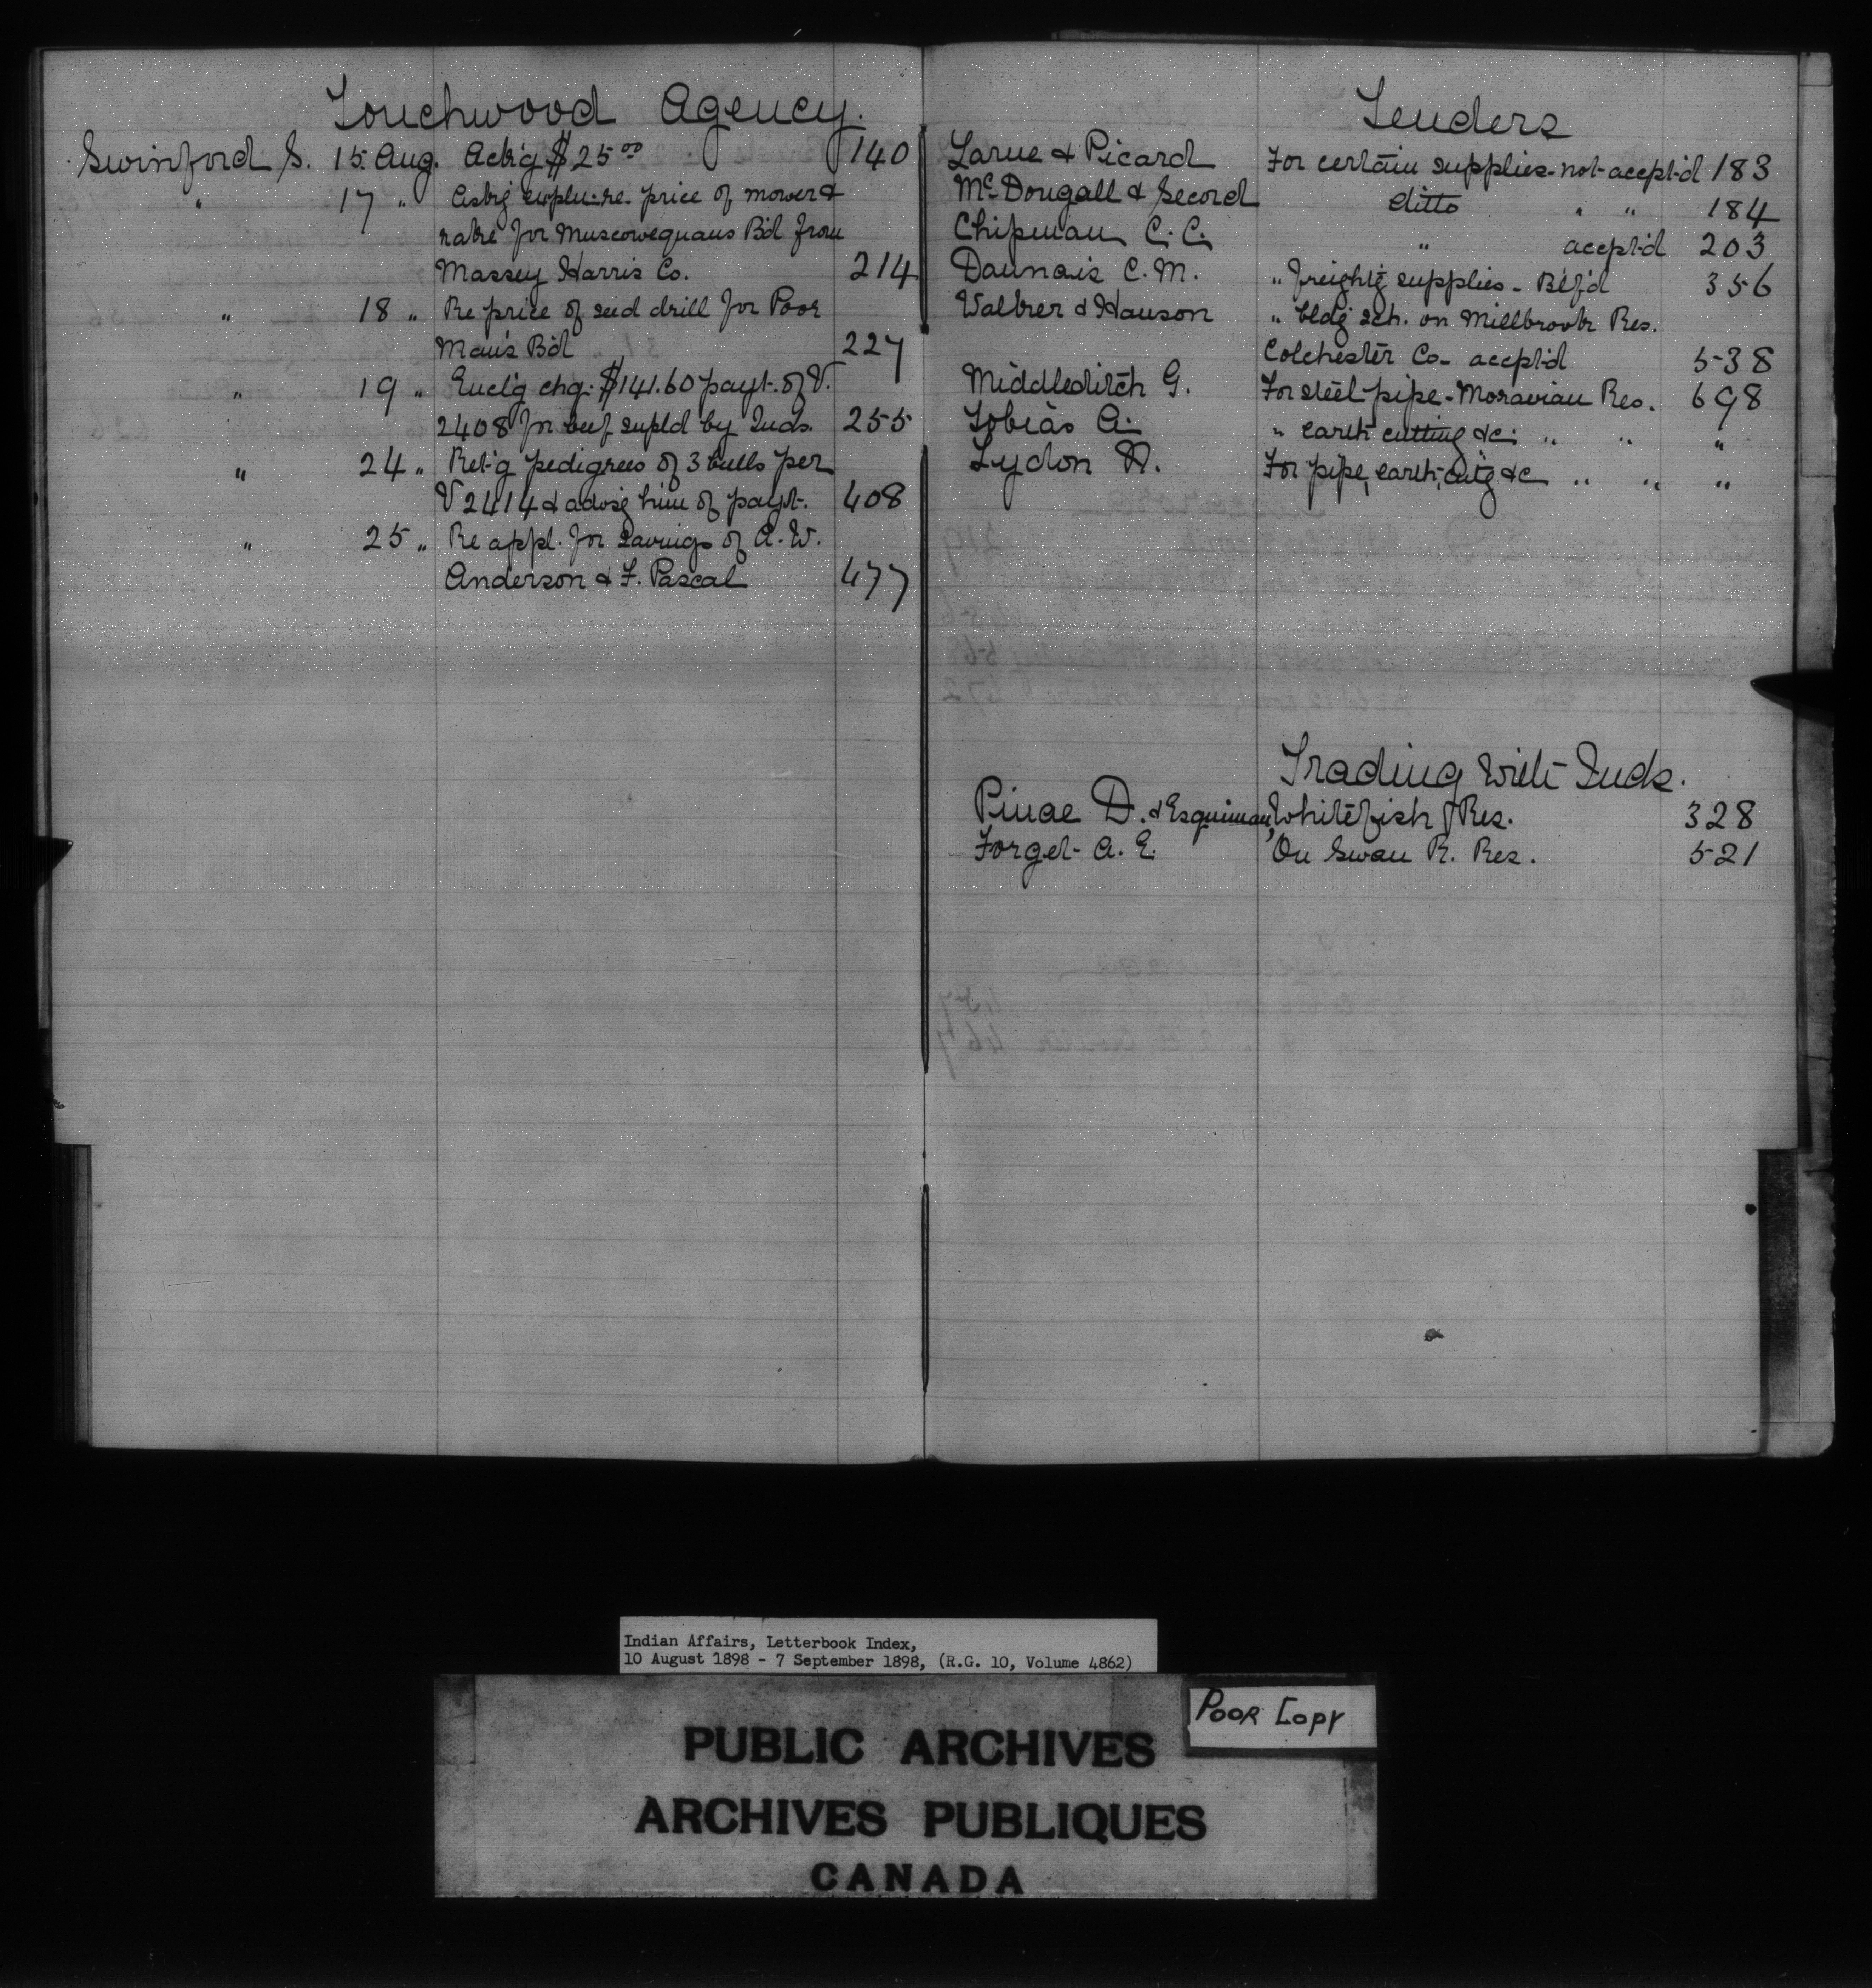 Touchwood Agency.
Swinford S. 15 Aug. Ack'g $25 00 140
" 17 " Ask'g expln. re. price of mower &
rake for Muscowequans B'd from
Massey Harris Co. 214
" 18 " Re price of seed drill for Poor
Man's B'd 227
" 19 " Encl'g chq. $141.60 payt. of V.
2408 for beef supld by Inds. 255
" 24 " Ret'g pedigrees of 3 bulls per
V 2414 & advisg him of payt. 408
" 25 " Re appl. for savings of A. W.
Anderson & F. Pascal 477
Tenders
Larue & Picard For certain supplies - not accept'd 183
McDougall & Secord ditto " " 184
Chipman C. C. " accept'd 203
Daunais C. M. " freight'g supplies - B'lf'd 356
Walker & Hanson " bldg sch. on Millbrook Res.
Colchester Co. accept'd 538
Middleditch G. For steel pipe - Moravian Res. 698
Tobias A. " earth cutting &c. " " "
Lydon For pipe, earth, cut'g &c " " "
Trading with Inds.
Pinae D. & Esquimau, Whitefish Res. 328
Forget A. E. On Swan R. Res. 521
Indian Affairs, Letterbook Index,
10 August 1898 - 7 September 1898, (R.G. 10, Volume 4862)
POOR COPY
PUBLIC ARCHIVES
ARCHIVES PUBLIQUES
CANADA